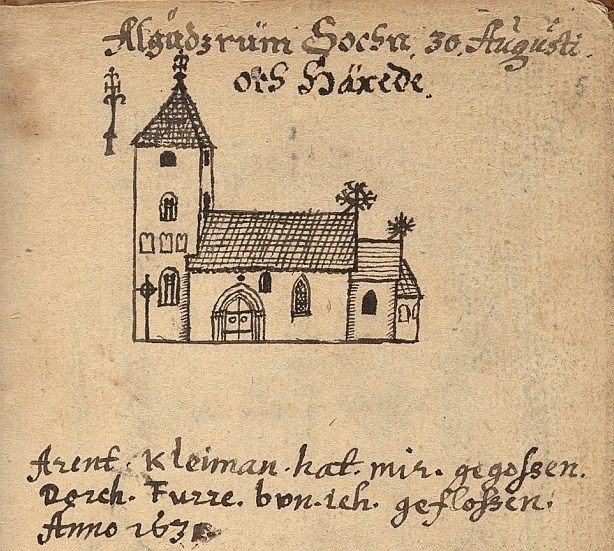 Algůdzrüm Sochn, 30. Augůsti.
och Häxede.
Arent. Kleiman. hat. mir. gegoßen.
Dorch. Furre. bvn. ich. gefloßen.
Anno